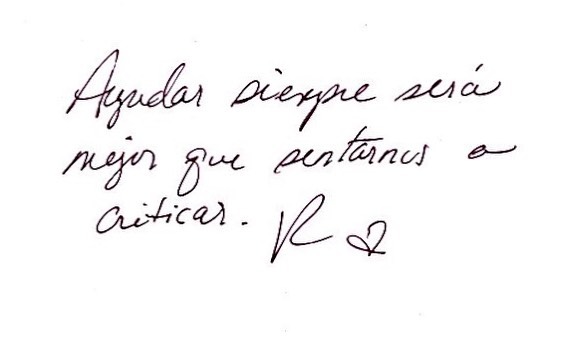 Ayudar siempre será
mejor que sentarnos a
criticar. R